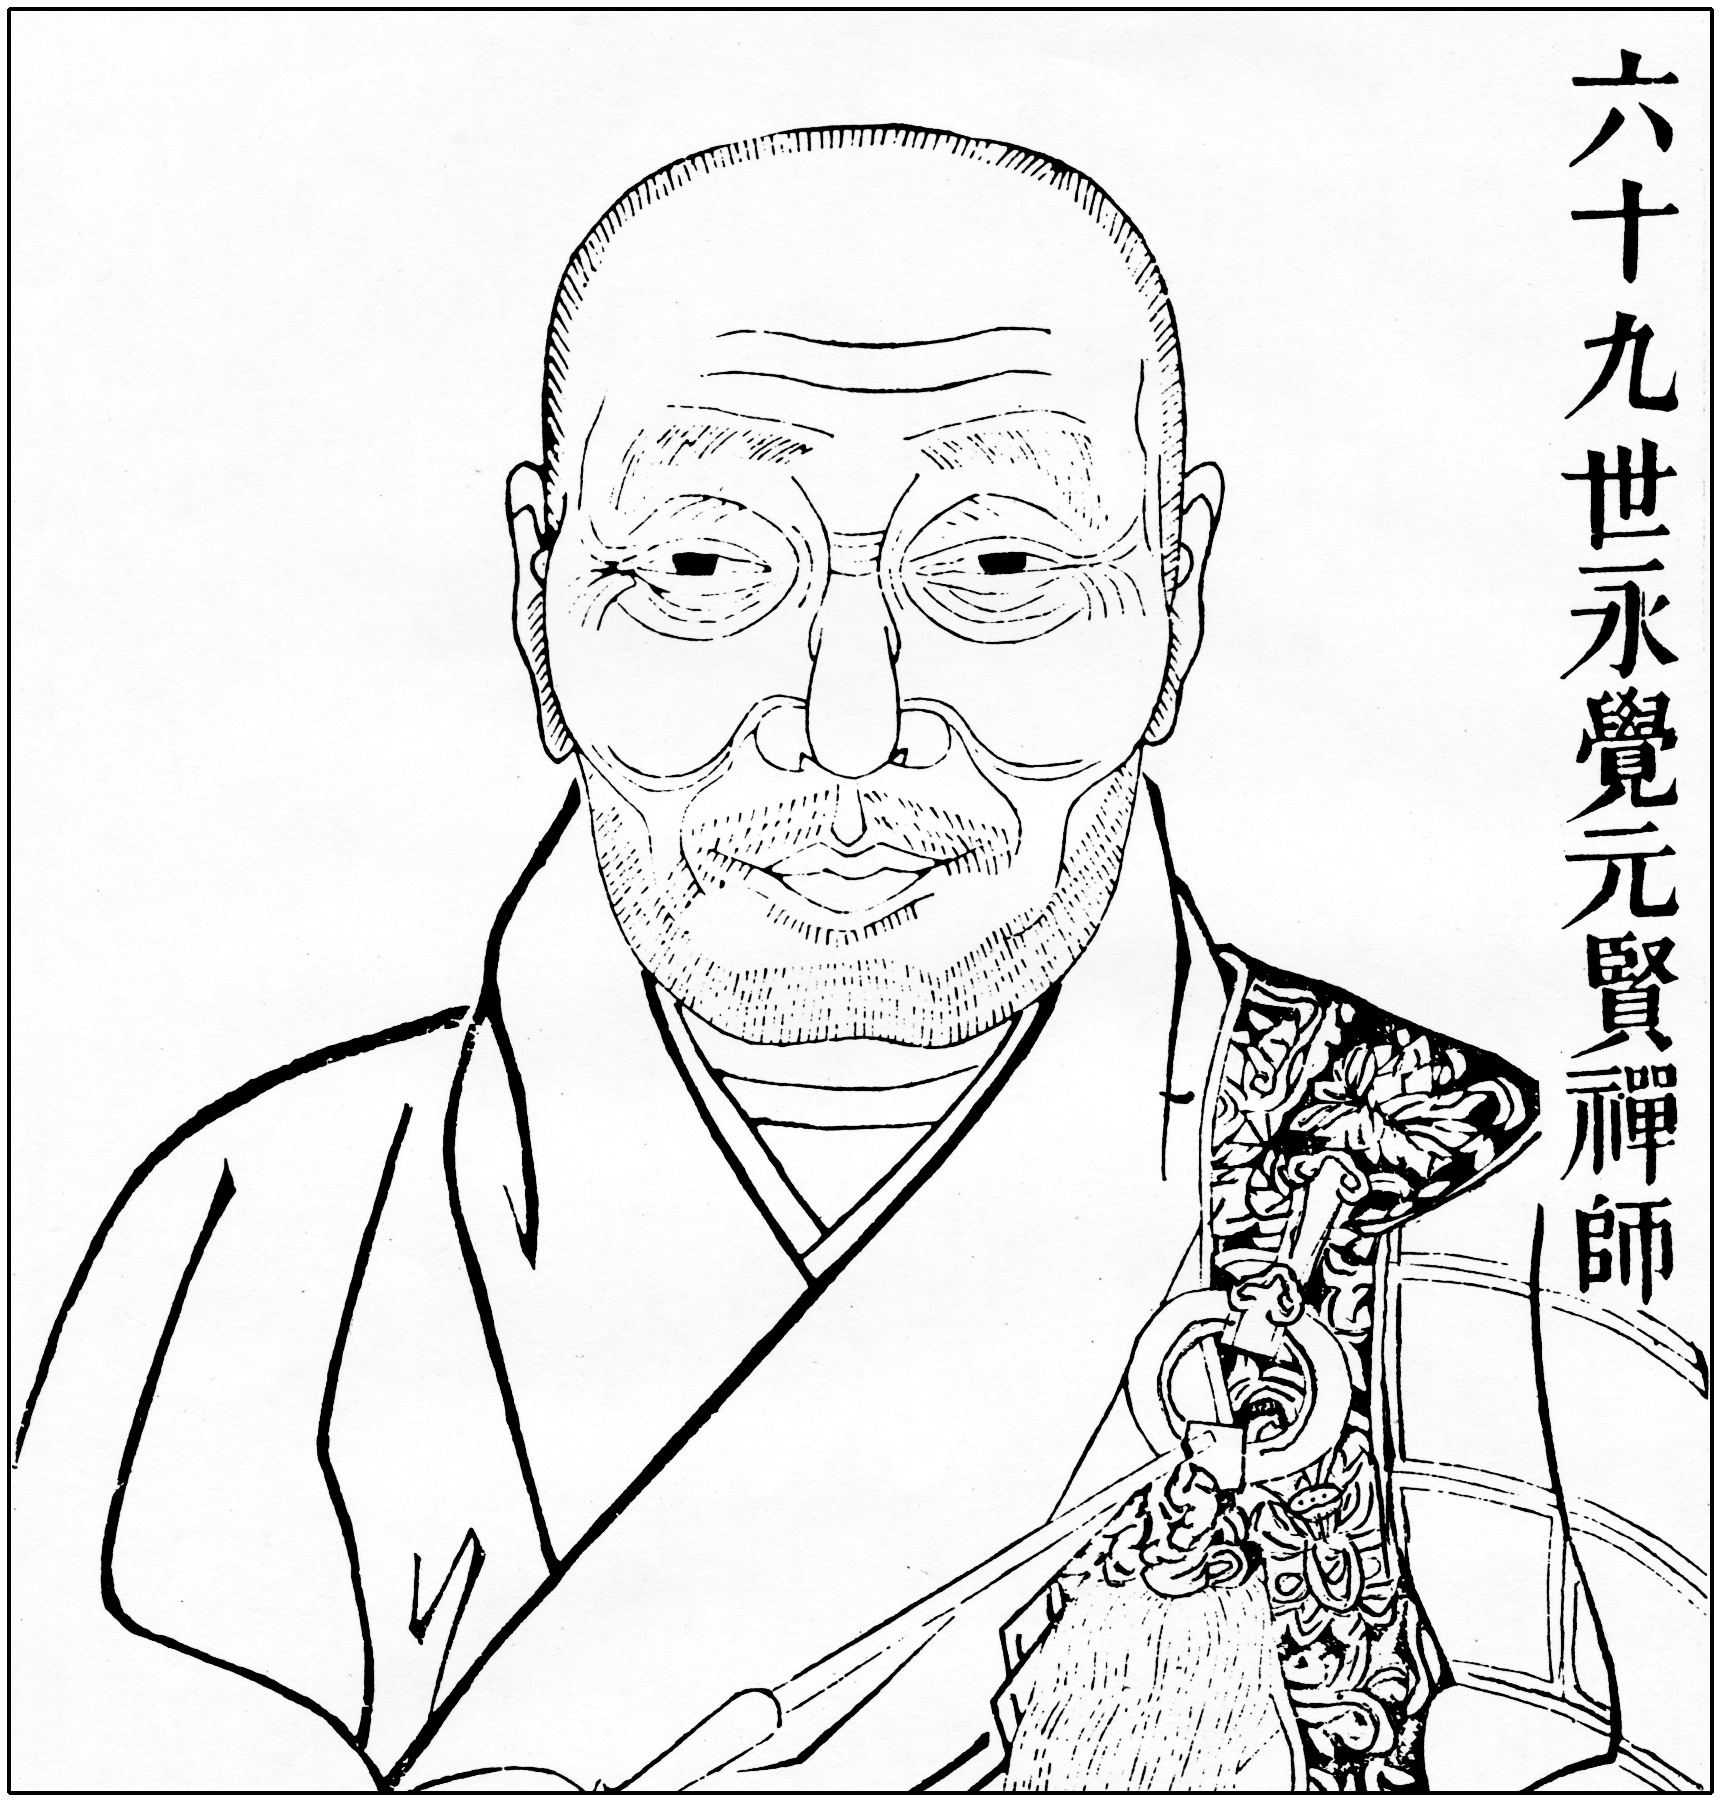 六十九世永覺元賢禪師